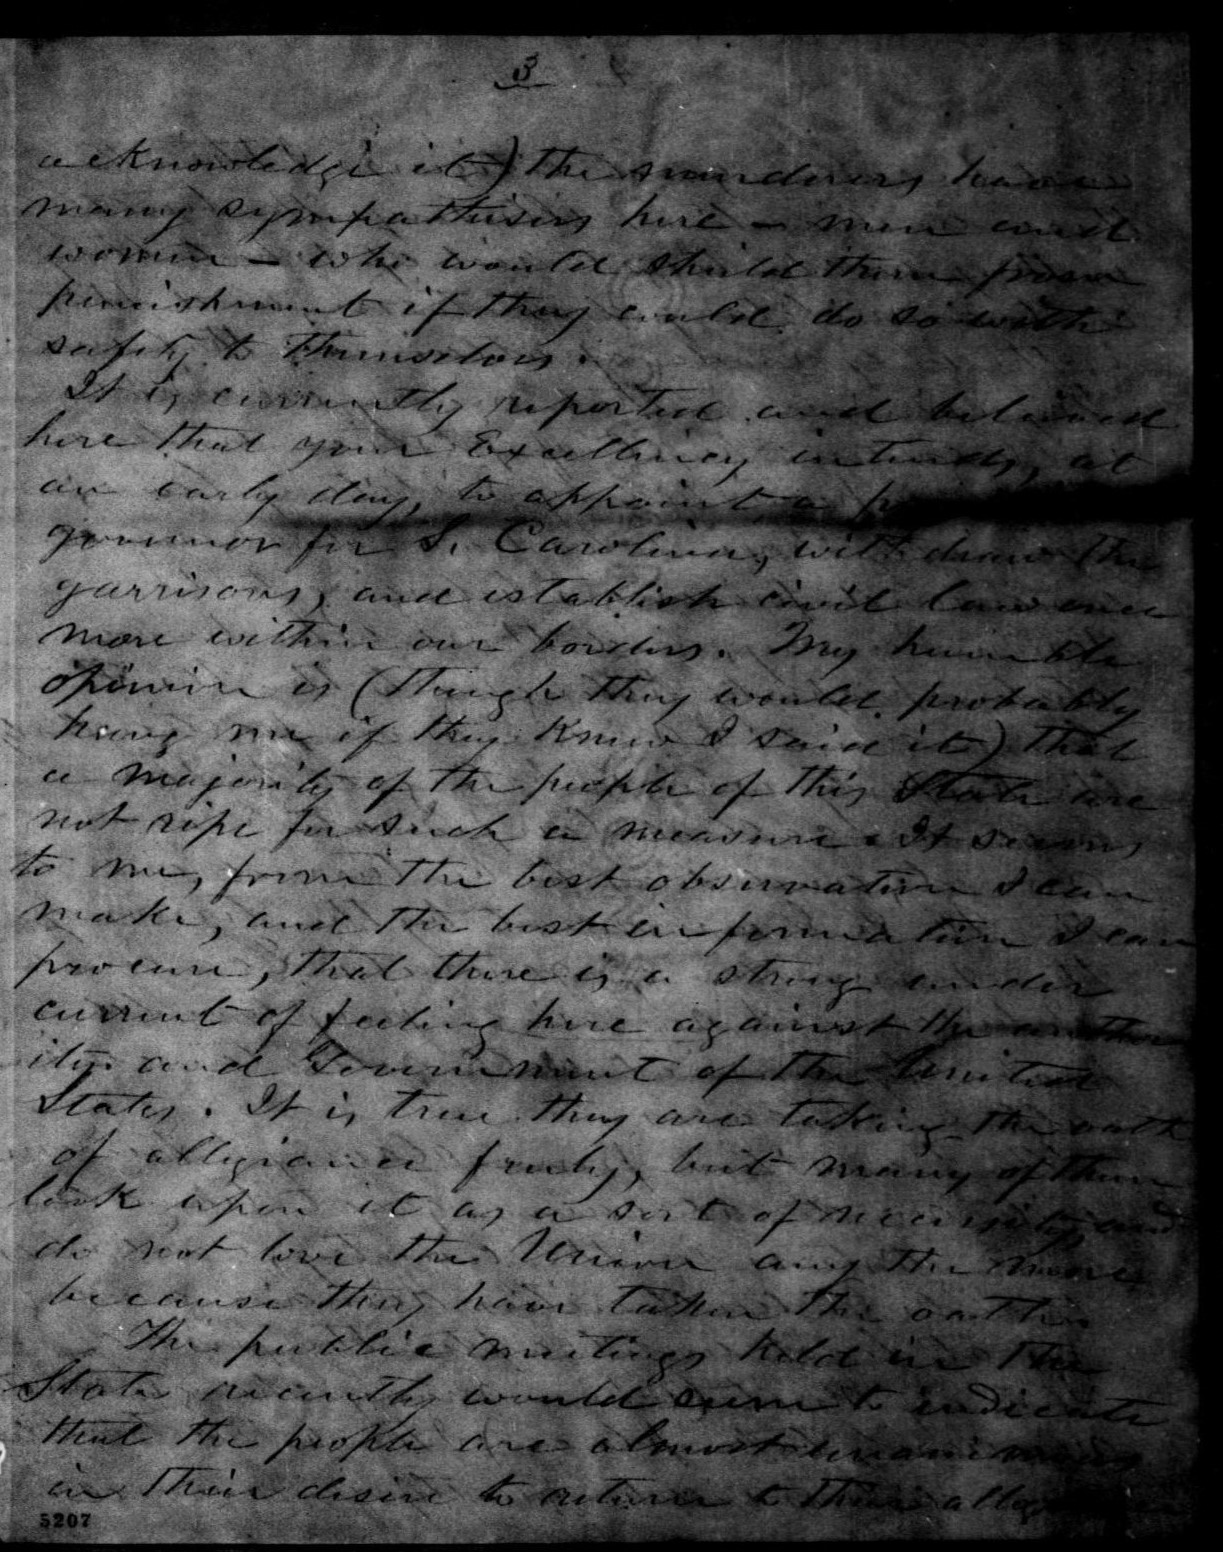 3
acknowledge it) the murderers have
many sympathisers here - men and
women - who would shield them from
punishment if they could do so with
safety to themselves.
It is currently reported and believed
here that your Excellency intends, at
an early day, to appoint a
governor for S. Carolina, withdraw the
garrisons, and establish civil law once
more within our borders. My humble
opinion is (though they would probably
hang me if they knew I said it) that
a majority of the people of this State are
not ripe for such a measure. It seems
to me, from the best observation I can
make, and the best information I can
procure, that there is a strong under
current of feeling here against the author
ity and Government of the United
States. It is true they are taking the oath
of allegiance freely, but many of them
look upon it as a sort of necessity and
do not love the Union any the more
because they have taken the oath.
The public meetings held in the
State recently would seem to indicate
that the people are almost unanimous
in their desire to return to their allegiance
5207